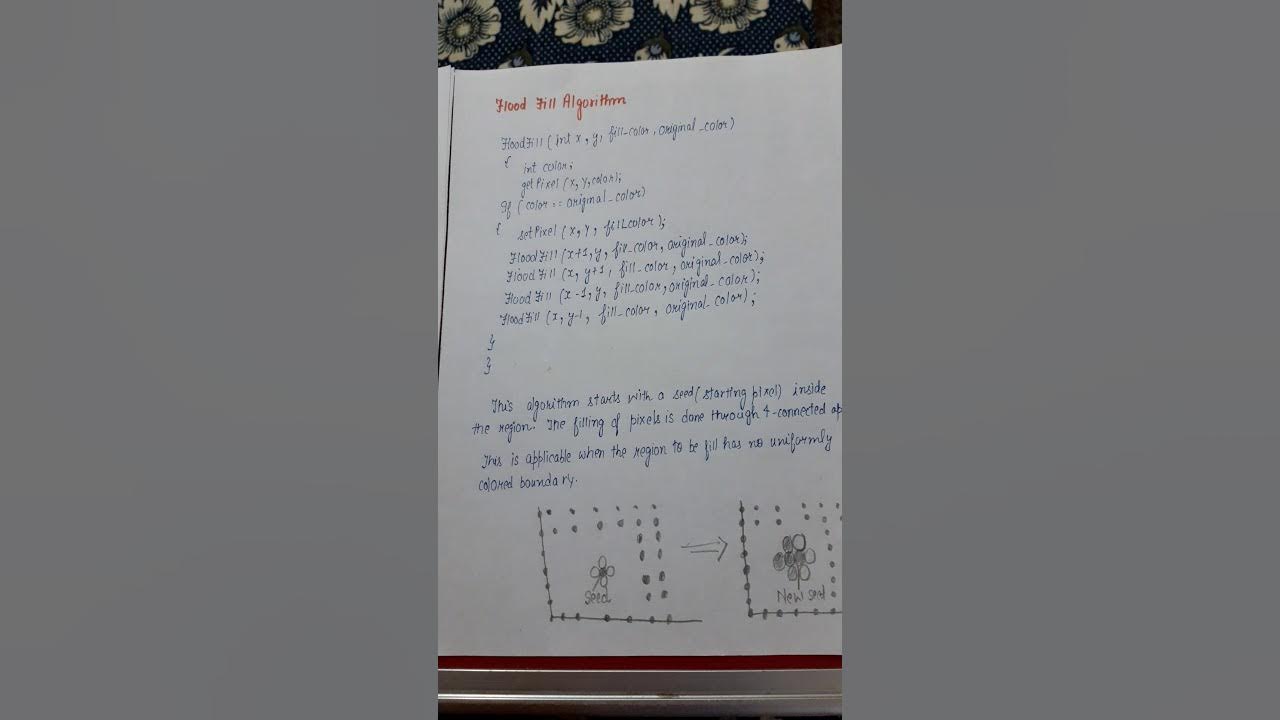 Flood Fill Algorithm
FloodFill (int x, y, fill_color, original_color)
{
int color;
getPixel (x, y, color);
If (color == original_color)
{
setPixel (x, y, fill_color);
FloodFill (x+1, y, fill_color, original_color);
FloodFill (x, y+1, fill_color, original_color);
FloodFill (x-1, y, fill_color, original_color);
FloodFill (x, y-1, fill_color, original_color);
}
}
This algorithm starts with a seed (starting pixel) inside
the region. The filling of pixels is done through 4-connected ap
This is applicable when the region to be fill has no uniformly
colored boundary.
Seed
New seed